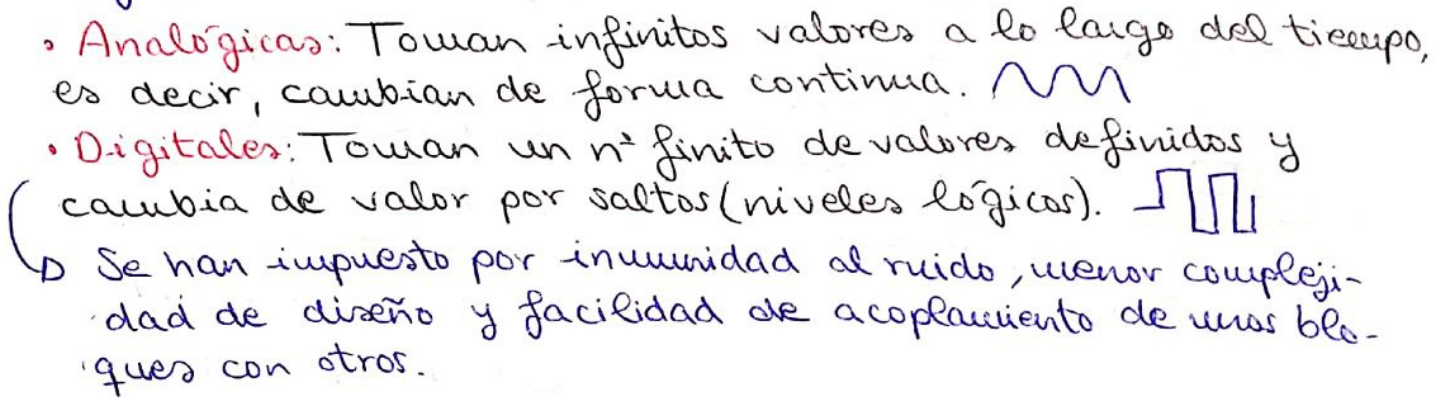 • Analógicas: Toman infinitos valores a lo largo del tiempo,
es decir, cambian de forma continua.
• Digitales: Toman un nº finito de valores definidos y
cambia de valor por saltos (niveles lógicos).
Se han impuesto por inmunidad al ruido, menor compleji-
dad de diseño y facilidad de acoplamiento de unos blo-
ques con otros.